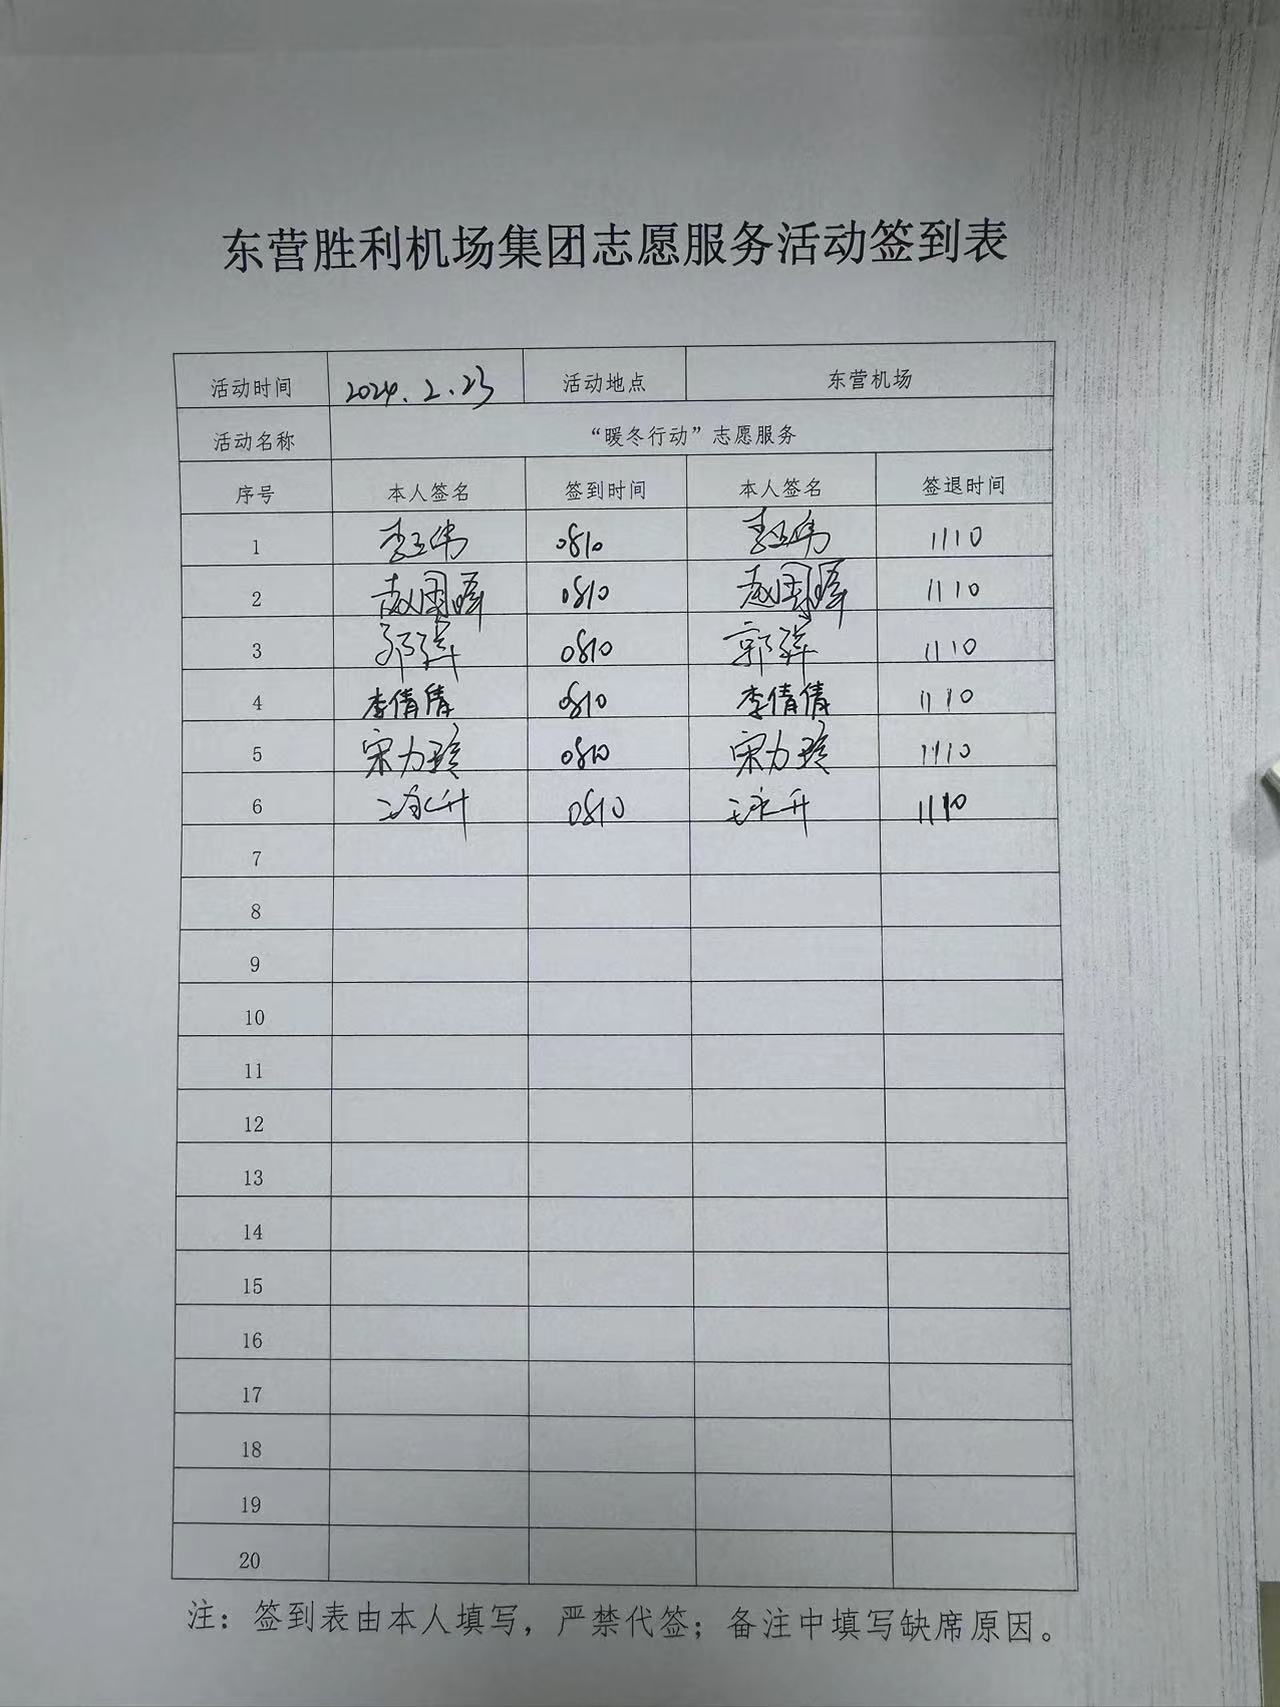 东营胜利机场集团志愿服务活动签到表
活动时间 2024.2.23 活动地点 东营机场
活动名称 “暖冬行动”志愿服务
序号 本人签名 签到时间 本人签名 签退时间
1 0810 1110
2 赵国晖 0810 赵国晖 1110
3 0810 1110
4 李倩倩 0810 李倩倩 1110
5 宋力 0810 宋力 1110
6 0810 1110
7
8
9
10
11
12
13
14
15
16
17
18
19
20
注：签到表由本人填写，严禁代签；备注中填写缺席原因。